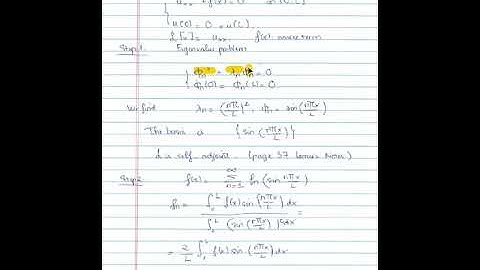 u(0) = 0 = u(L)
L[u] = u_xx , f(x) : source term
Step 1. Eigenvalue problem
ϕn'' + λn ϕn = 0
ϕn(0) = ϕn(L) = 0
We find λn = (nπ/L)², ϕn = sin(nπx/L)
The basis is {sin(nπx/L)}
L is self adjoint. (page 37 Lecture Notes)
Step 2 f(x) = Σ_{n=1}^{∞} fn (sin nπx/L)
fn = ∫_0^L f(x) sin(nπx/L) dx / ∫_0^L (sin(nπx/L))² dx =
= 2/L ∫_0^L f(x) sin(nπx/L) dx